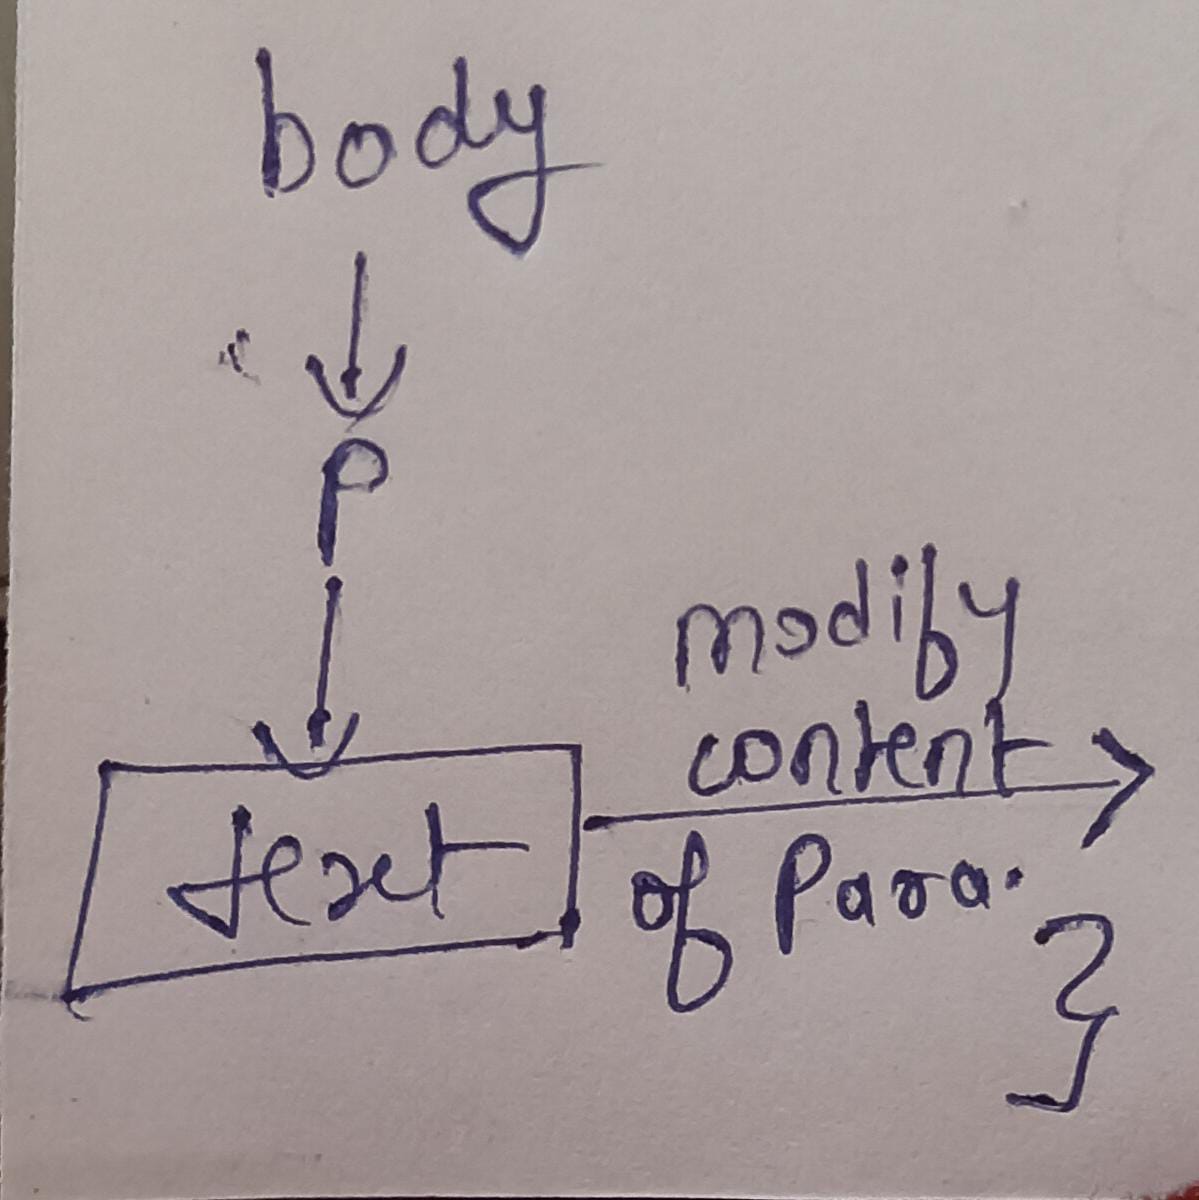 body
P
text
modify
content
of Para.
}